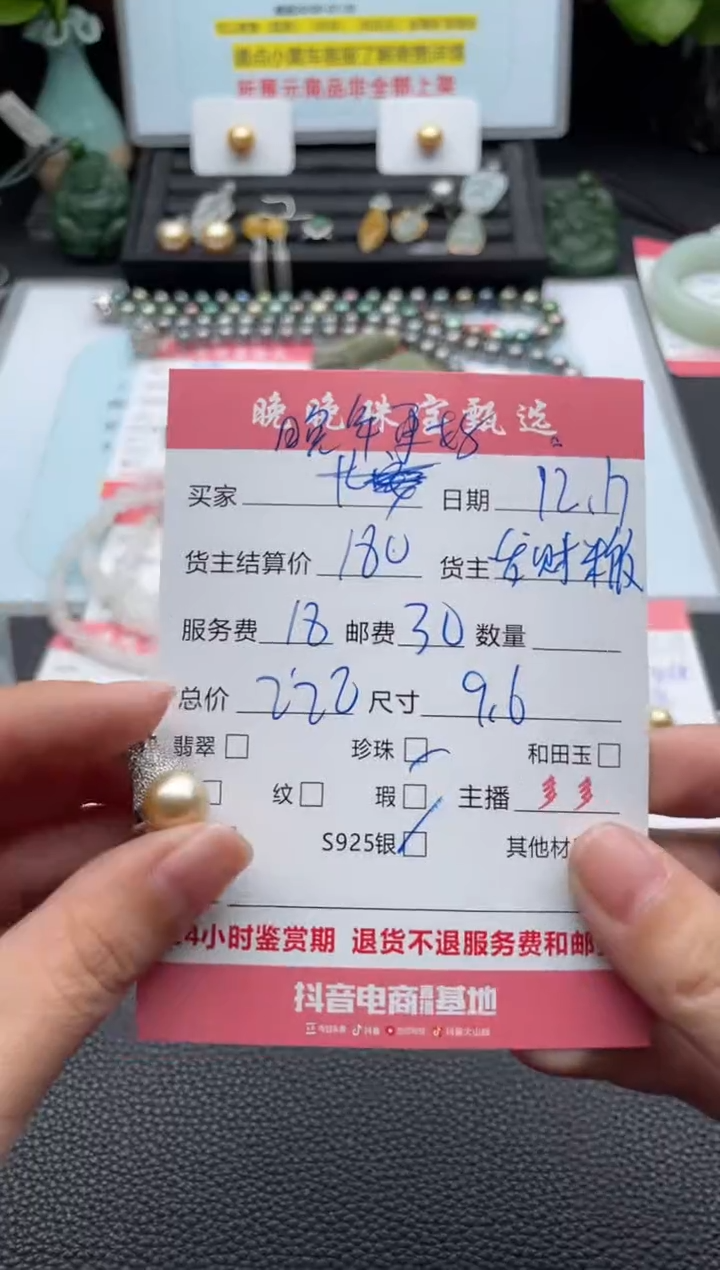 请点小黄车客服了解寄售详情
所展示商品非全部上架
晚晚珠宝甄选
晚年更好
买家 日期 12.17
货主结算价 180 货主 发财猴
服务费 18 邮费 30 数量
总价 228 尺寸 9.6
翡翠 珍珠 和田玉
纹 瑕 主播 多多
S925银 其他材
24小时鉴赏期 退货不退服务费和邮
抖音电商直播基地
抖音 抖音火山版